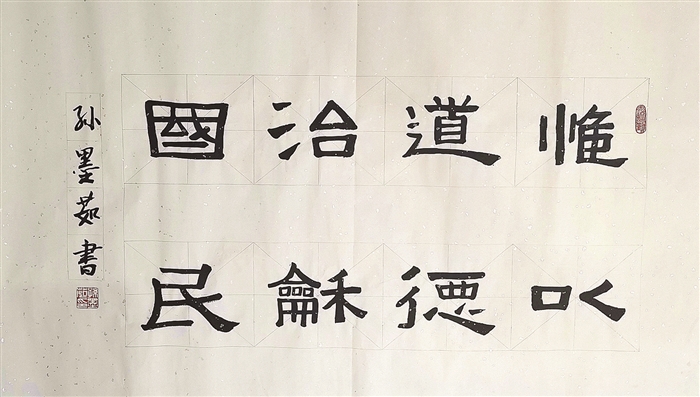 惟道治國
以德龢民
孙墨茹書